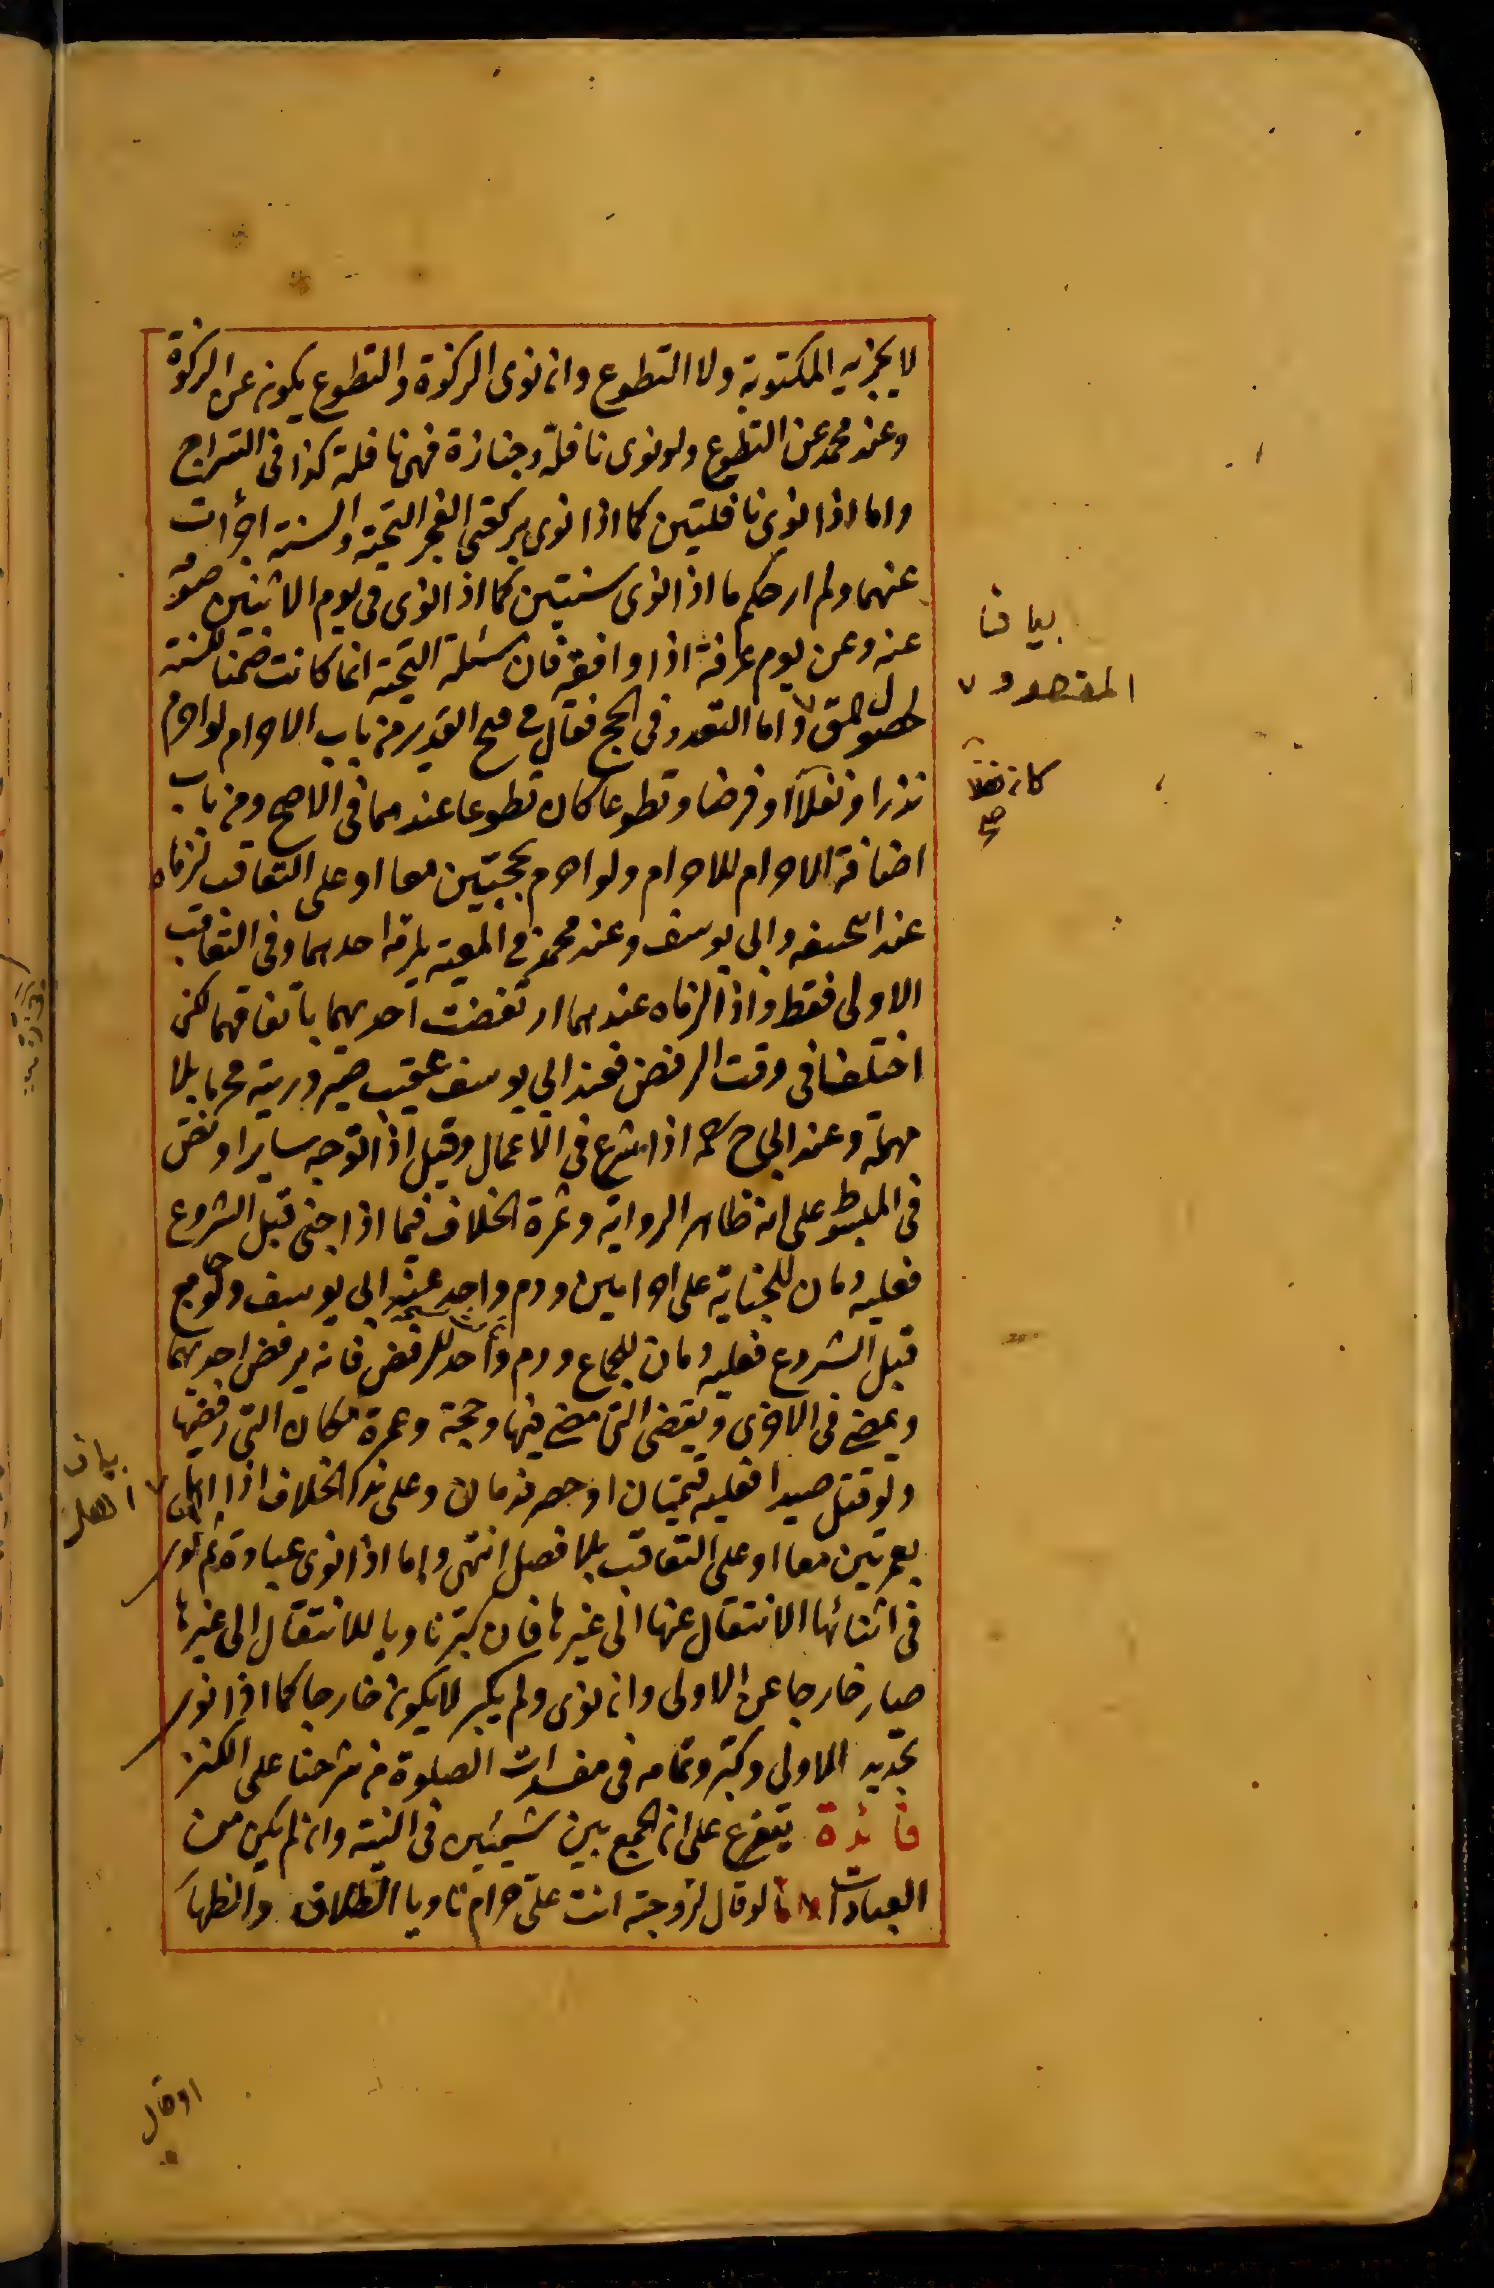 لا يجزيه المكتوبة ولا التطوع وان نوى الزكوة والتطوع يكون عن الزكوة
وعند محمد عن التطوع ولو نوى نافلة وجنازة فهى نافلة كذا فى السراج
واما اذا نوى نافلتين كما اذا نوى بركعتى الفجر التحية والسنة اجزأت
عنهما ولم ار حكم ما اذا نوى سنتين كما اذا نوى فى يوم الاثنين صومه
عنه وعن يوم عرفة اذا وافقه فان مسئلة التحية انما كانت ضمنا للسنة
لحصول المق واما التعدد فى الحج فقال فى فتح القدير من باب الاحرام لو احرم
نذرا ونفلا او فرضا وتطوعا كان تطوعا عندهما فى الاصح ومن باب
اضافة الاحرام للاحرام ولو احرم بحجتين معا او على التعاقب لزماه
عند ابى حنيفه وابى يوسف وعند محمد فى المعية يلزمه احدهما وفى التعاقب
الاولى فقط واذا لزماه عندهما ارتفضت احديهما باتفاقهما لكن
اختلفا فى وقت الرفض فعند ابى يوسف عقيب صيرورته محرما بلا
مهلة وعند ابى ح اذا شرع فى الاعمال وقيل اذا توجه سايرا ونص
فى المبسوط على انه ظاهر الرواية وثمرة الخلاف فيما اذا جنى قبل الشروع
فعليه دمان للجناية على احرامين ودم واحد عند ابى يوسف ولو جامع
قبل الشروع فعليه دمان للجماع ودم واحد للرفض فانه يرفض احديهما
ويمضى فى الاخرى ويقضى التى مضى فيها وحجة وعمرة مكان التى رفضها
ولو قتل صيدا فعليه قيمتان او احصر فدمان وعلى هذا الخلاف اذا اهل
بعمرتين معا او على التعاقب بلا فصل انتهى واما اذا نوى عبادة ثم نوى
فى اثنائها الانتقال عنها الى غيرها فان كبر ناويا للانتقال الى غيرها
صار خارجا عن الاولى وان نوى ولم يكبر لا يكون خارجا كما اذا نوى
تجديد الاولى وكبر وتمامه فى مفسدات الصلوة من شرحنا على الكنز
فائدة يتفرع على ان الجمع بين شيئين فى النية وان لم يكن من
العبادات ما لو قال لزوجته انت على حرام ناويا الطلاق والظهار
بيان
المقصود
كان نفلا
صح
بيان
اهل
او قال